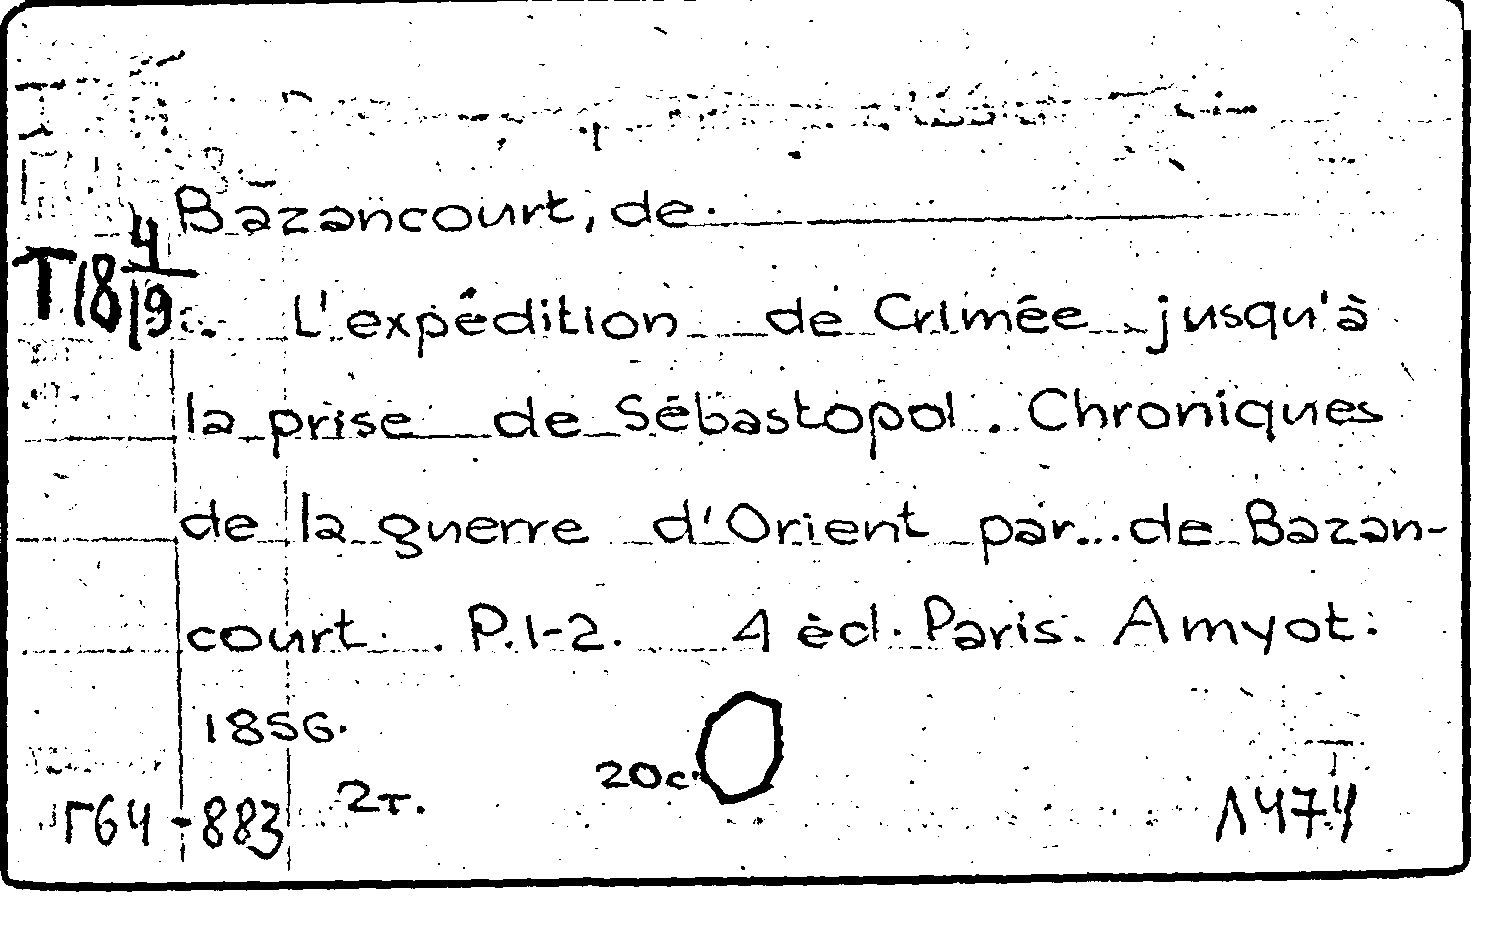 Bazancourt, de.
T18 4/19
L'expédition de Crimée jusqu'à
la prise de Sébastopol. Chroniques
de la guerre d'Orient par... de Bazan-
court. P.1-2. 4 éd. Paris. Amyot.
1856.
2т. 20с.
Г64-883
Л474